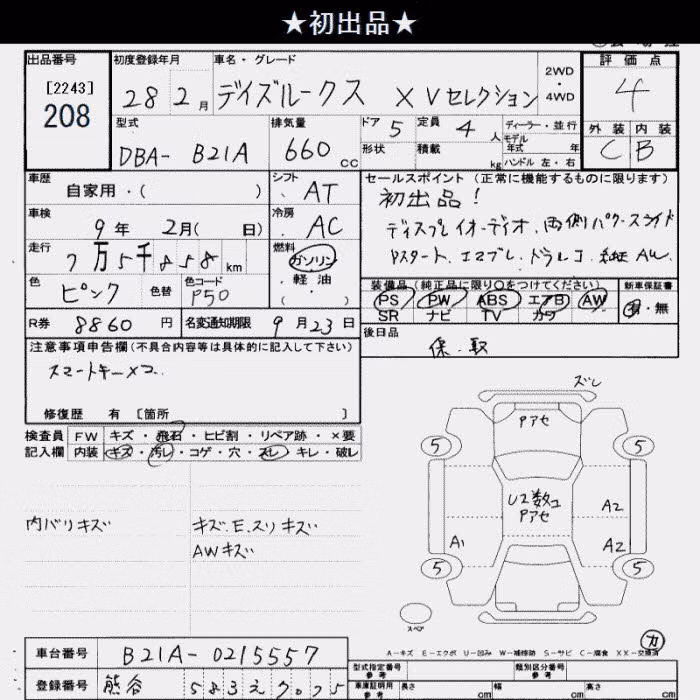 ★初出品★
出品番号 初度登録年月 車名・グレード 2WD・4WD 評価点
[2243]
208
28 2月 デイズルークス XVセレクション 4
型式 排気量 ドア 5 定員 4人 ディーラー・並行 外装 内装
DBA- B21A 660cc 形状 積載 kg モデル年式 年 ハンドル 左・右 C B
車歴 シフト セールスポイント (正常に機能するものに限ります)
自家用・( ) AT 初出品!
車検 冷房
9年 2月( 日) AC ディスプレイオーディオ、両側パワースライド
走行 燃料 Pスタート、エマブレ、ドラレコ、純正AW、
7万5千858km ガソリン・軽油・( )
色 色替 色コード 装備品(純正品に限り○をつけてください) 新車保証書
ピンク P50 PS PW ABS エアB AW 有・無
SR ナビ TV カワ
R券 8860円 名変通知期限 9月23日 後日品
注意事項申告欄(不具合内容等は具体的に記入して下さい) 保.取
スマートキー×2
修復歴 有 [箇所 ]
検査員 FW キズ・飛石・ヒビ割・リペア跡・×要
記入欄 内装 キズ・汚レ・コゲ・穴・スレ・キレ・破レ
内バリキズ キズ、E、スリキズ
AWキズ
ズレ
Pアセ
5 5
U2数コ
Pアセ
A2
A1 A2
5 5
スペア
A-キズ E-エクボ U-凹み W-補修跡 S-サビ C-腐食 XX-交換済
車台番号 B21A-0215557 型式指定番号 参考 類別区分番号 参考
登録番号 熊谷 583 え 7075 車庫証明用 参考 長さ cm 幅 cm 高さ cm